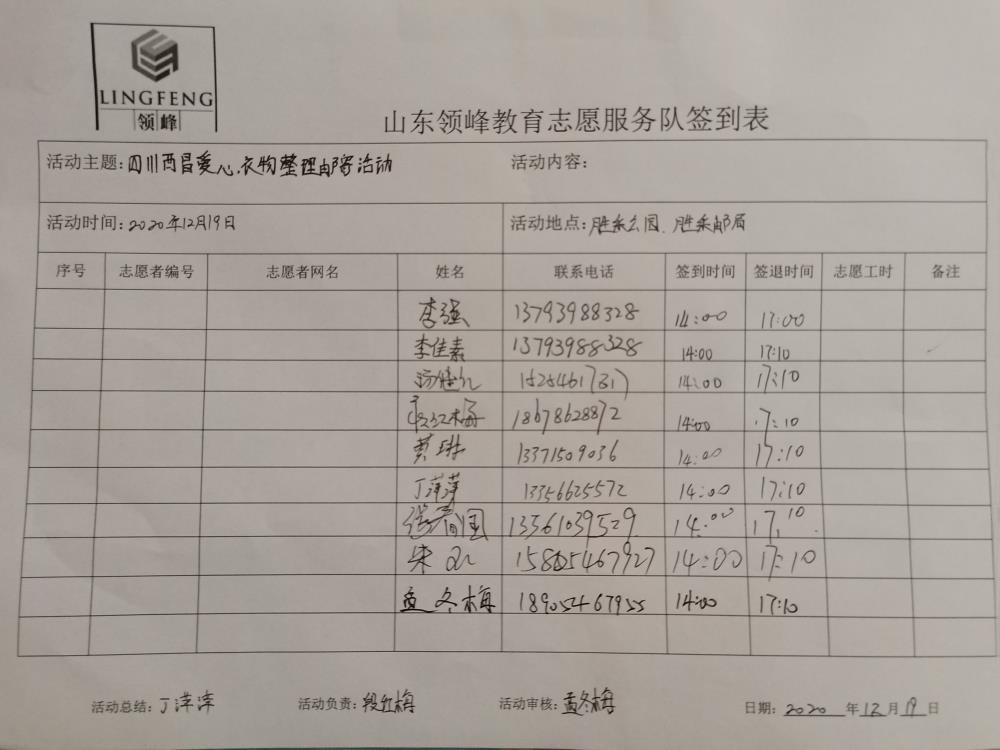 LINGFENG
领峰
山东领峰教育志愿服务队签到表
活动主题:四川西昌爱心衣物整理邮寄活动 活动内容:
活动时间:2020年12月19日 活动地点:胜采公园、胜采邮局
序号 志愿者编号 志愿者网名 姓名 联系电话 签到时间 签退时间 志愿工时 备注
李强 13793988328 14:00 17:00
李佳素 13793988328 14:00 17:10
14:00 17:10
段红梅 18678628872 14:00 17:10
贾琳 13371509036 14:00 17:10
丁萍萍 13356625572 14:00 17:10
13561039529 14:00 17:10
朱 15805467927 14:00 17:10
孟冬梅 18905467955 14:00 17:10
活动总结:丁萍萍 活动负责:段红梅 活动审核:孟冬梅 日期:2020年12月19日